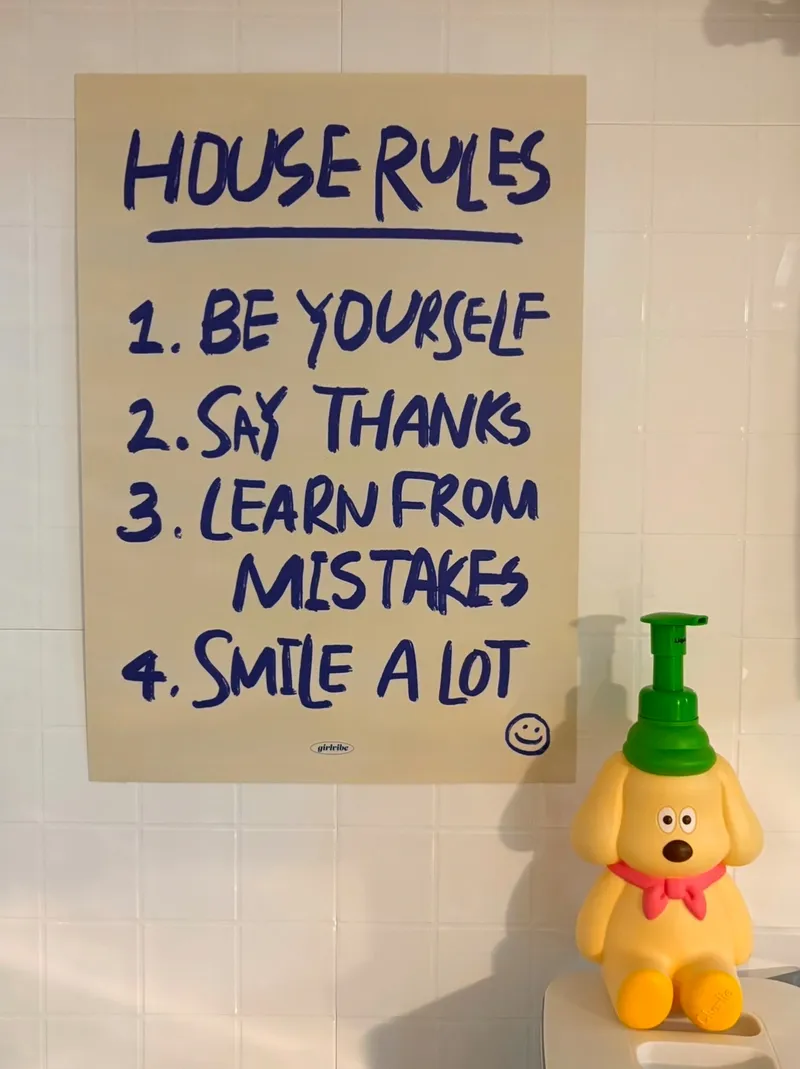 HOUSE RULES
1. BE YOURSELF
2. SAY THANKS
3. LEARN FROM
MISTAKES
4. SMILE A LOT
girlvibe